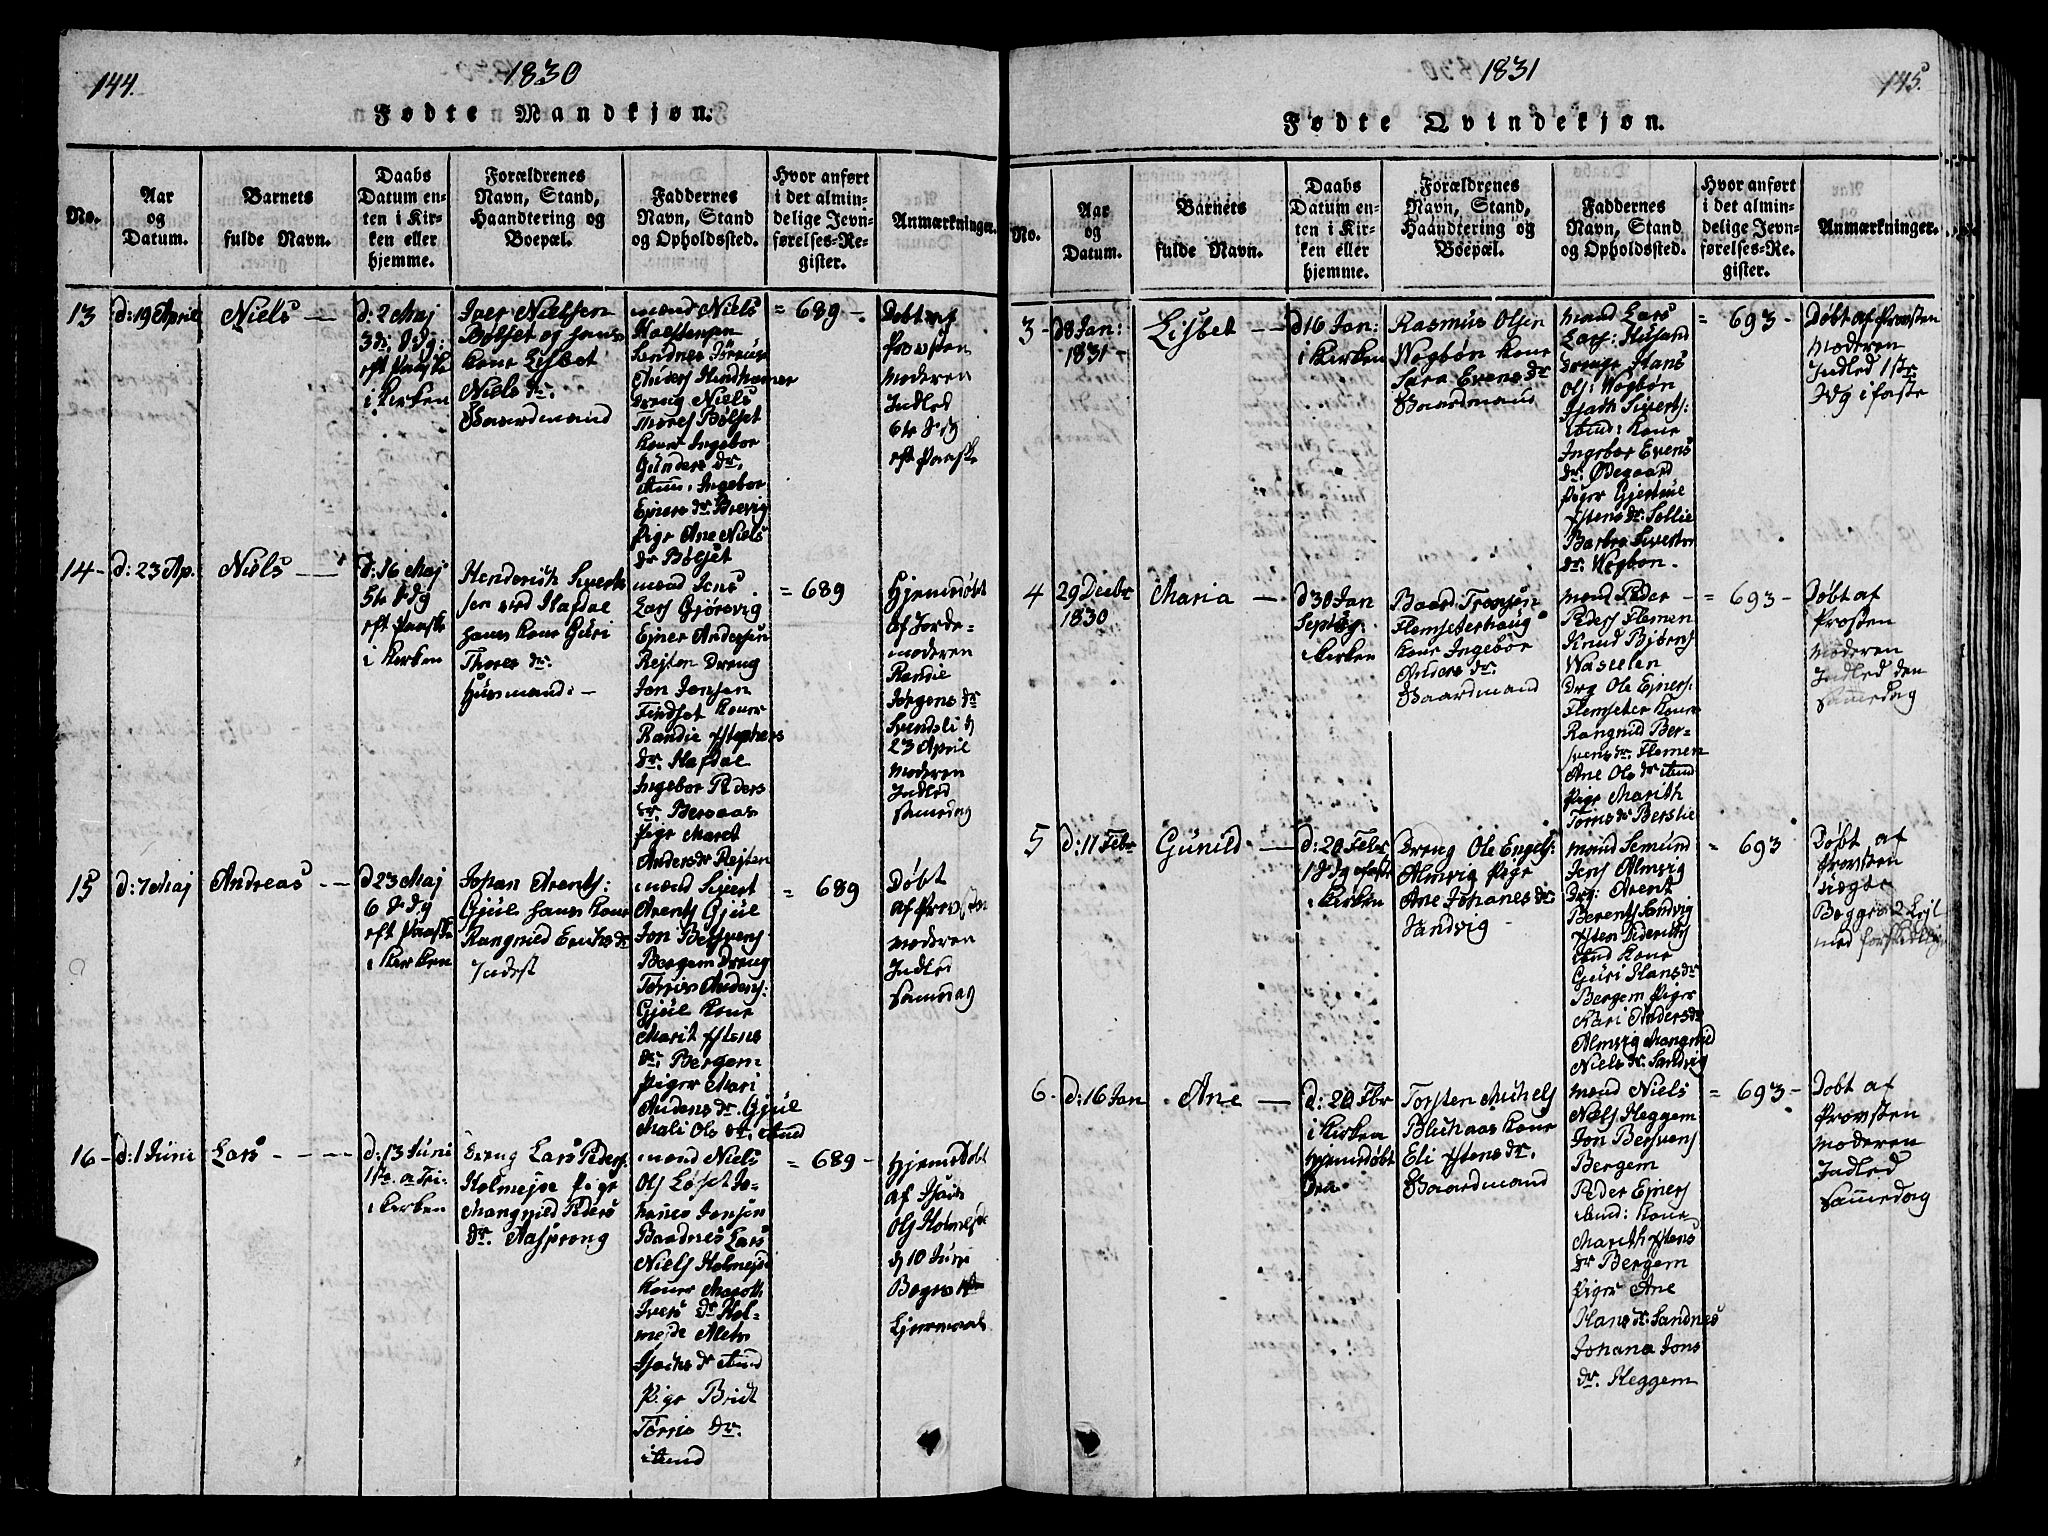 144.
1830
Fødte Mandkjøn.
No.
Aar
og
Datum.
Barnets
fulde Navn.
Daabs
Datum en-
ten i Kir-
ken eller
hjemme.
Forældrenes
Navn, Stand,
Haandtering og
Boepæl.
Faddernes
Navn, Stand
og Opholdssted.
Hvor anført
i det almin-
delige Jevn-
førelses-Re-
gister.
Anmærkninger.
13
d: 19 April
Niels
d: 2 Maj
3de Sdg:
eft Paaske
i Kirken
Iver Nielssen
Bolset og hans
Kone Lisbet
Niels dr:
Gaardmand
mænd Niels
Dreng Niels
Thores Bølset
Koner Ingebor
Gunders dr.
Ingebor
Ejners dr Brevig
Pige Ane Niels
dr Bølset
= 689 -
Døbt af
Provsten
Moderen
Indled
6te Sdg
eft Paaske
14 -
d: 23 Ap.
Niels
d: 16 Maj
5te Sdg
eft Paaske
i Kirken
Henderich Sivert
sen ved Hafdal
hans Kone Guri
Thores dr:
Husmand: -
mænd Jens
Lars Gjörsvig
Ejner Andersen
Rejten Dreng
Jon Jonsen
Findset Koner
Randie Estephers
dr. Hafdal
Ingebor Peders
dr. Bersaas
Pige Maret
Anders dr Rejten
= 689
Hjemdøbt
af Jorde=
moderen
Randie
Jørgens dr
Svendsli d
23 April
Moderen
Indled
samedag
15
d: 7 Maj
Andreas
d 23 Maj
6 Sdg
eft Paaske
i Kirken
Johan Arents:
Gjül hans Kone
Rangnied Erichs dr
Indest
mænd Sivert
Arents Gjül
Jon Bersvens
Bergem Dreng
Torris Anders:
Gjül Kone
Marit Estens
dr: Bergem
Piger Mari
Anders dr. Gjül
Mali Ols dr. ibmd
= 689
Døbt
af Provsten
Moderen
Indled
Samedag
16 -
d: 1 Juni
Lars
d: 13 Juni
1ste a Tri
i Kirken
Dreng Lars Peders:
Holmejde Pige
Mangnied Peders
dr. Aasprong
mænd Niels
Ols Løset Jo-
hanes Jonsen
Baadnes Lars
Niels Holmejd
Koner Marith
Ivers dr Hol-
mejde Mete
Isachs dr
Pige Bridt
Tørris dr.
= 689 -
Hjemdøbt
af Isach
Ols Holmejde
d 10 Juni
Begges 1te
Lejermaal
1831
145.
Fødte Qvindekjøn.
No.
Aar
og
Datum.
Barnets
fulde Navn.
Daabs
Datum en-
ten i Kir-
ken eller
hjemme.
Forældrenes
Navn, Stand,
Haandtering og
Boepæl.
Faddernes
Navn, Stand
og Opholdssted.
Hvor anført
i det almin-
delige Jevn-
førelses-Re-
gister.
Anmærkninger.
3 -
d 8 Jan:
1831 -
Lisbet
d 16 Jan:
i Kirken
Rasmus Olsen
Wogbøn Kone
Sara Evens dr
Gaardmand
mænd Lars
Lars: Husand
Drenge Hans
Ols: Wogbøn
Isach Siverts:
Kone
Ingebor Evens
dr: Ødegaard
Piger Gjertrue
Estens dr. Sollie
Barbra Siverts
dr: Wogbøn.
= 693 -
Døbt af Provsten
Moderen
Indled 1ste
Sdg i faste
4
29 Decbr
1830
Maria
d 30 Jan
Septüg.
i Kirken
Baard Tronsen
Flemseterhaug
Kone Ingebor
Anders dr
Gaardmand
mænd Peder
Peders Flemen
Knud Bjørns
Waselen
Drg Ole Ejners:
Flemseter Kone
Rangnild Ber-
svens dr. Flemen
Ane Ols dr
Pige Marith
Torris dr Berslie
= 693 -
Døbt af
Prosten
Moderen
Indled den
Sammedag
5
d: 11 Febr
Gunild
d: 20 Febr
1 Sdg i faste
i Kirken
Dreng Ole Engels:
Almvig Pige
Ane Johanes dr:
Sandvig
mænd Semund
Jens Almvig
Drg: Arent
Berents Sandvig
Esten Pedersen
Kone
Guri Hans dr
Bergem Piger
Kari Anders dr
Almvig Mangnied
Niels dr. Sandvig
= 693
Døbt af
Provsten
Begges 2 Lejl
med
6
d: 16 Jan
Ane
d: 20 Fbr
i Kirken
Hjemdøbt
Torsten Michels
Blichaas Kone
Eli Estens dr.
Gaardmand
mænd Niels
Niels Heggem
Jon Bersvens
Bergem
Peder Ejners
Kone
Marith Estens
dr Bergem
Piger Ane
Hans dr. Sandnes
Johana Jons
dr. Heggem
= 693 -
Døbt af
Provsten
Moderen
Indled
Sammedag